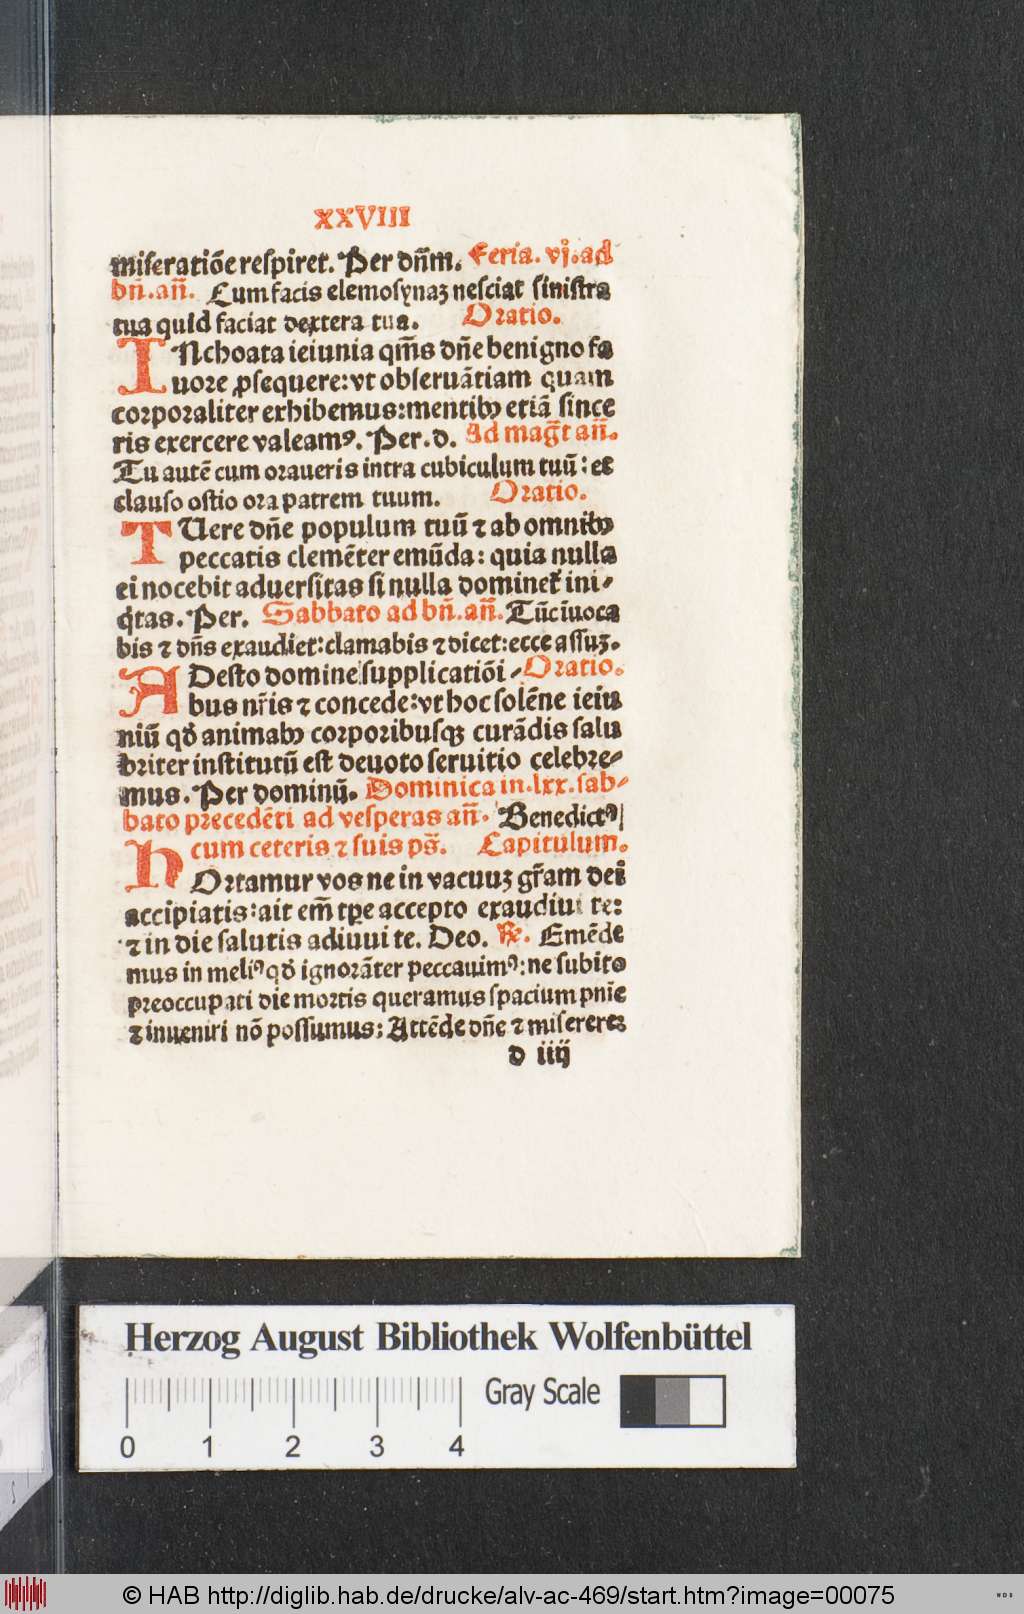 XXVIII
miſeratiōe reſpiret. Per dn̄m. Feria. vj. ad
bn̄. an̄. Cum facis elemoſynaꝫ neſciat ſiniſtra
tua quid faciat dextera tua. Oratio.
INchoata ieiunia qm̄s dn̄e benigno fa
uore ꝓſequere: vt obſeruātiam quam
corporaliter exhibemus: mentibꝰ etiā ſince
ris exercere valeamꝰ. Per. d. Ad mag̅t an̄.
Tu autē cum oraueris intra cubiculum tuū: et
clauſo oſtio ora patrem tuum. Oratio.
TUere dn̄e populum tuū ⁊ ab omnibꝰ
peccatis clemēter emūda: quia nulla
ei nocebit aduerſitas ſi nulla dominet᷑ ini⸗
q̇tas. Per. Sabbato ad bn̄. an̄. Tūc īuoca
bis ⁊ dn̄s exaudiet: clamabis ⁊ dicet: ecce aſſuꝫ.
ADeſto domine ſupplicatiōi⸗ Oratio.
bus nr̄is ⁊ concede: vt hoc ſolēne ieiu
niū qđ animabꝰ corporibuſqꝫ curādis ſalu
briter inſtitutū eſt deuoto ſeruitio celebre⸗
mus. Per dominū. Dominica in. lxx. ſab⸗
bato precedēti ad veſperas an̄. Benedictꝰ
cum ceteris ⁊ ſuis pſ̄. Capitulum.
HOrtamur vos ne in vacuuꝫ gr̄am dei
accipiatis: ait em̄ tꝑe accepto exaudiui te:
⁊ in die ſalutis adiuui te. Deo. ℟. Emēde
mus in meliꝰ qđ ignorāter peccauimꝰ: ne ſubito
preoccupati die mortis queramus ſpacium pn̄ie
⁊ inueniri nō poſſumus: Attēde dn̄e ⁊ miſerere⁊
d iiij
Herzog August Bibliothek Wolfenbüttel
Gray Scale
0 1 2 3 4
© HAB http://diglib.hab.de/drucke/alv-ac-469/start.htm?image=00075